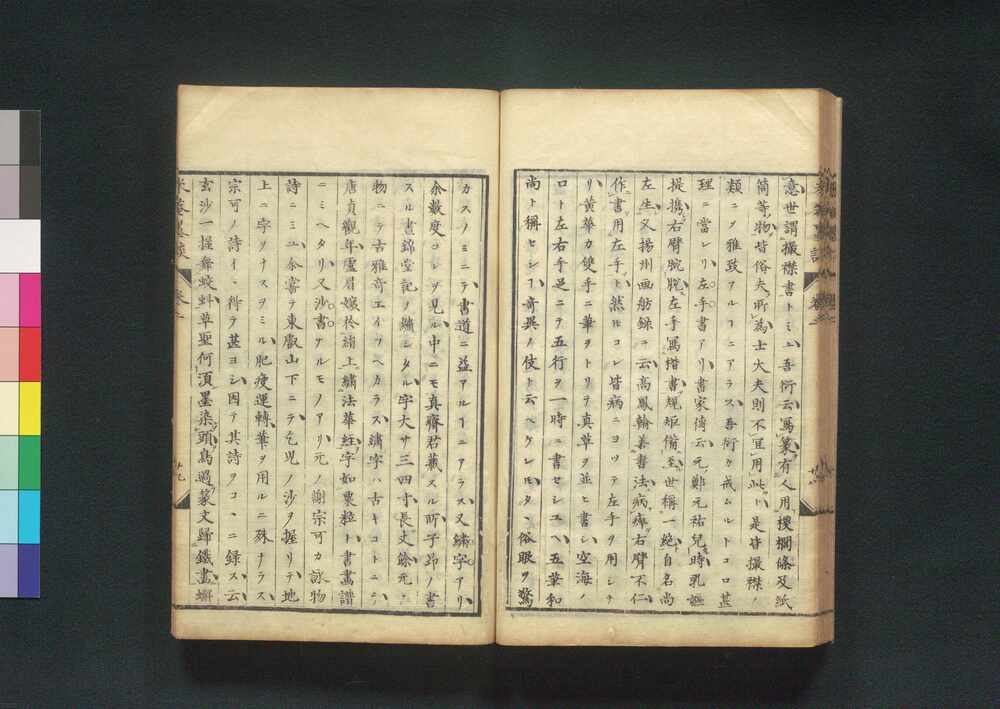 意世謂撮襟書トミユ吾衍云寫篆有人用椶櫚條及紙
筒等物皆俗夫所為士大夫則不宜用此ト是皆撮襟ノ
類ニソ雅致アルヿニアラス吾衍カ戒ムルトコロ甚
理ニ當レリ左手書アリ書家傳云元鄭元祐兒時乳
提携右臂腕脱左手寫楷書規矩備至世稱一絶自名尚
左生又揚州画舫録ニ云高鳳翰善書法病痺右臂不仁
作書用左手ト然ルコレ皆病ニヨツテ左手ヲ用シナ
リ黄華カ雙手ニ筆ヲトリテ真草ヲ並ヒ書シ空海ノ
口ト左右手足ニテ五行ヲ一時ニ書セシユヘ五筆和
尚ト稱セシヿ奇異ノ伎ト云ヘケレ𪜈タヽ俗眼ヲ驚
カスノミニテ書道ニ益アルヿニアラス又繍字アリ
余數度コレヲ見ル中ニモ真齋君藏スル所子昂ノ書
スル晝錦堂記ノ繍シタル字大サ三四寸長丈餘元ノ
物ニテ古雅奇エイフヘカラス繍字ハ古キコトニテ
唐貞觀年盧眉娘於絹上繍法華経字如粟粒ト書畫譜
ニミヘタリ又沙書ナルモノアリ元ノ謝宗可カ詠物
詩ニミユ余嘗テ東叡山下ニテ乞兒ノ沙ヲ握リテ地
上ニ字ヲナスヲミル肥瘦運轉筆ヲ用ルニ殊ナラス
宗可ノ詩イヒ得テ甚ヨシ因テ其詩ヲコヽニ録ス云
玄沙一握舞蛟虯草聖何須墨染頭鳥過篆文歸鐵畫蟹
米菴墨談